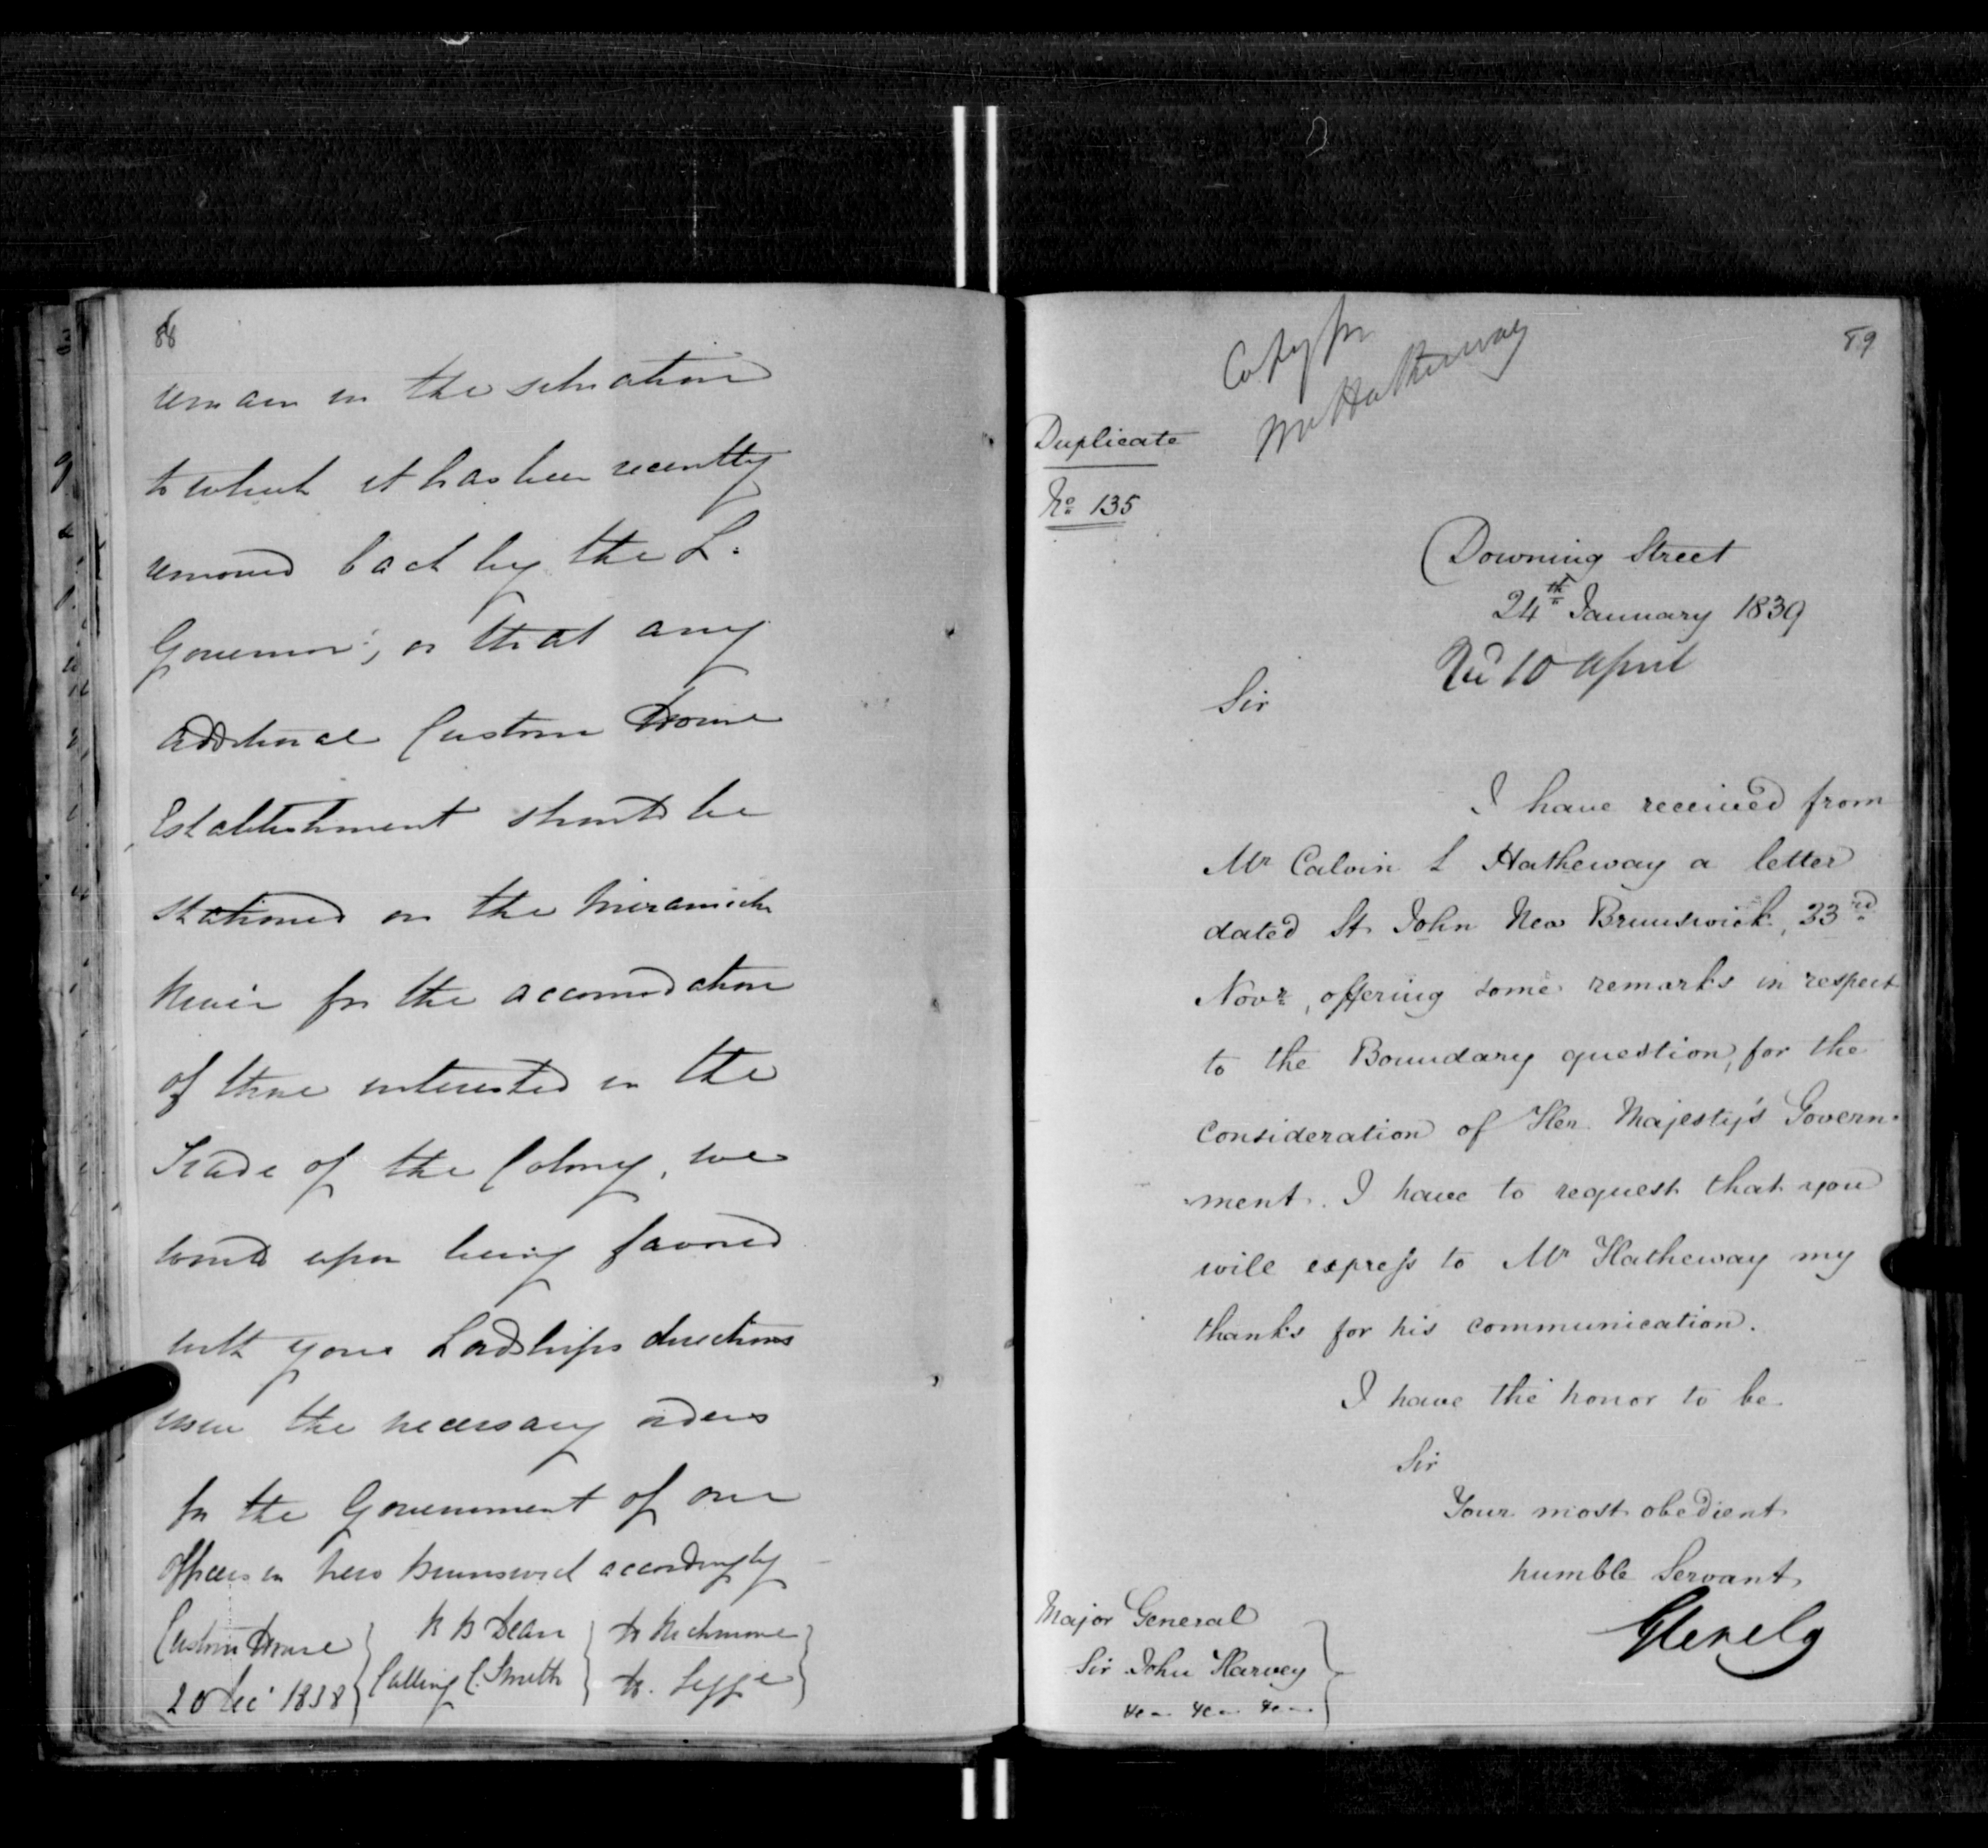 88
remain in the situation
to which it has been recently
removed back by the L.
Governor, or that any
additional Custom House
Establishment should be
stationed on the Miramichi
River for the accomodation
of those interested in the
Trade of the Colony, we
would upon being favored
with your Lordships directions
issue the necessary orders
for the Government of our
Officers in New Brunswick accordingly
Custom House
20 Dec 1838
R B Dean
Culling C. Smith
H Richmond
H. Legge
89
Copy for
Mr Hatheway
Duplicate
No 135
Downing Street
24th January 1839
Recd 10 April
Sir
I have received from
Mr Calvin L Hatheway a letter
dated St John New Brunswick, 23rd
Novr, offering some remarks in respect
to the Boundary question, for the
consideration of Her Majesty's Govern-
ment. I have to request that you
will express to Mr Hatheway my
thanks for his communication.
I have the honor to be
Sir
Your most obedient
humble Servant
Glenelg
Major General
Sir John Harvey
&c &c &c